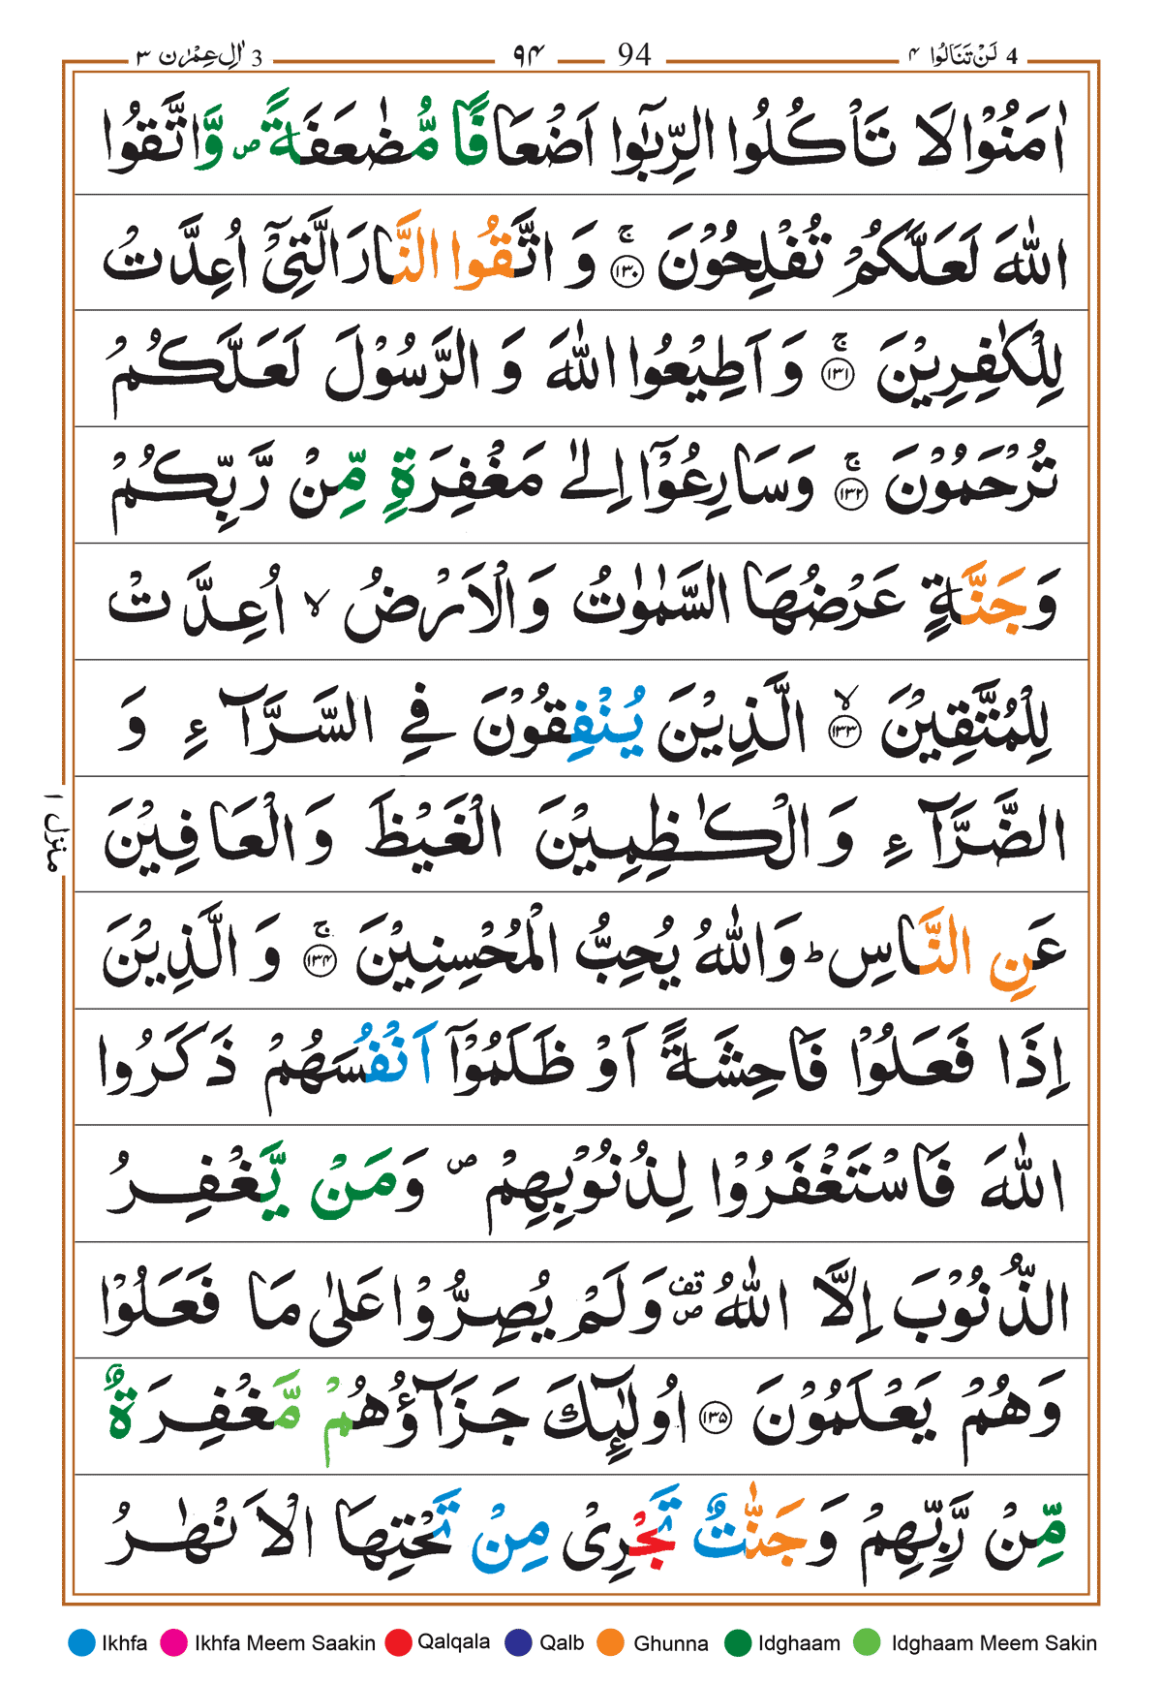 3 اٰلِ عِمْرٰن ٣ ٩٤ 94 لَنْ تَنَالُوا ٤ 4
اٰمَنُوْا لَا تَاْكُلُوا الرِّبٰٓوا اَضْعَافًا مُّضٰعَفَةً ۪ وَّاتَّقُوا
اللّٰهَ لَعَلَّكُمْ تُفْلِحُوْنَ ۚ ﴿١٣٠﴾ وَ اتَّقُوا النَّارَ الَّتِىْۤ اُعِدَّتْ
لِلْكٰفِرِيْنَ ۚ ﴿١٣١﴾ وَ اَطِيْعُوا اللّٰهَ وَ الرَّسُوْلَ لَعَلَّكُمْ
تُرْحَمُوْنَ ۚ ﴿١٣٢﴾ وَسَارِعُوْۤا اِلٰى مَغْفِرَةٍ مِّنْ رَّبِّكُمْ
وَجَنَّةٍ عَرْضُهَا السَّمٰوٰتُ وَالْاَرْضُ ۙ اُعِدَّتْ
لِلْمُتَّقِيْنَ ۙ ﴿١٣٣﴾ الَّذِيْنَ يُنْفِقُوْنَ فِى السَّرَّآءِ وَ
الضَّرَّآءِ وَ الْكٰظِمِيْنَ الْغَيْظَ وَالْعَافِيْنَ
عَنِ النَّاسِ ؕ وَاللّٰهُ يُحِبُّ الْمُحْسِنِيْنَ ۚ ﴿١٣٤﴾ وَ الَّذِيْنَ
اِذَا فَعَلُوْا فَاحِشَةً اَوْ ظَلَمُوْۤا اَنْفُسَهُمْ ذَكَرُوا
اللّٰهَ فَاسْتَغْفَرُوْا لِذُنُوْبِهِمْ ۪ وَمَنْ يَّغْفِرُ
الذُّنُوْبَ اِلَّا اللّٰهُ ۪۟ وَلَمْ يُصِرُّوْا عَلٰى مَا فَعَلُوْا
وَهُمْ يَعْلَمُوْنَ ﴿١٣٥﴾ اُولٰٓئِكَ جَزَآؤُهُمْ مَّغْفِرَةٌ
مِّنْ رَّبِّهِمْ وَجَنّٰتٌ تَجْرِىْ مِنْ تَحْتِهَا الْاَنْهٰرُ
منزل ١
Ikhfa Ikhfa Meem Saakin Qalqala Qalb Ghunna Idghaam Idghaam Meem Sakin